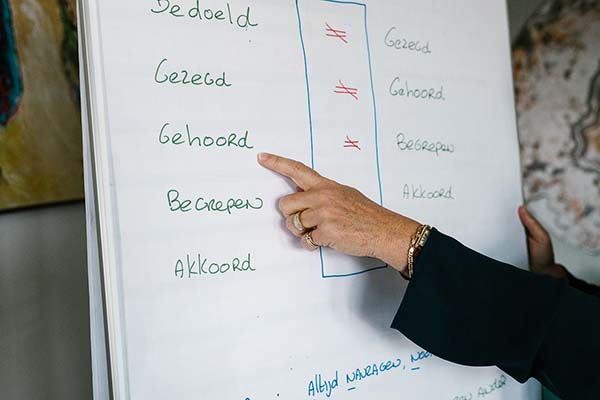 Bedoeld ≠ Gezegd
Gezegd ≠ Gehoord
Gehoord ≠ Begrepen
Begrepen Akkoord
Akkoord
Altijd NAVRAGEN,